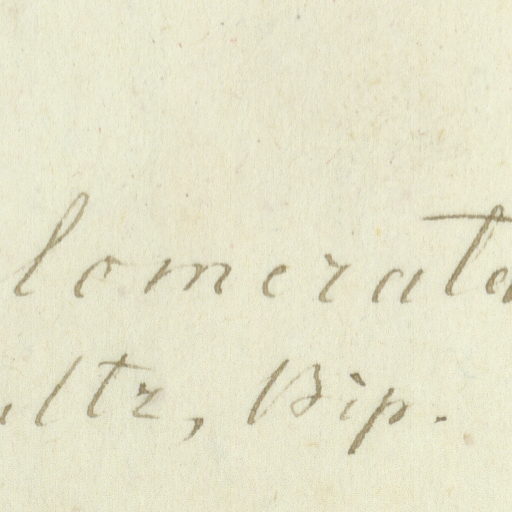 lomerata
ultz, Bip.